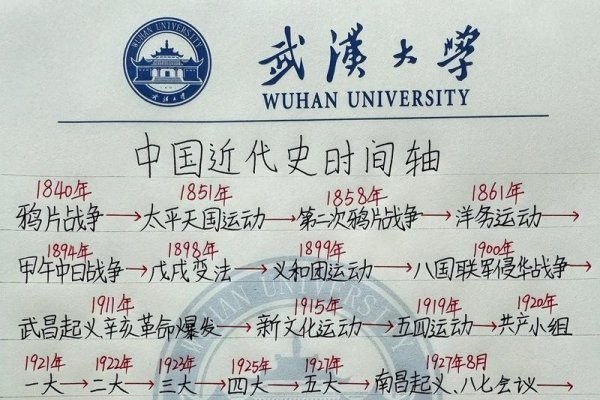 WUHAN UNIVERSITY
武漢大學
武漢大學
WUHAN UNIVERSITY
中国近代史时间轴
1840年 1851年 1858年 1861年
鸦片战争→太平天国运动→第二次鸦片战争→洋务运动→
1894年 1898年 1899年 1900年
甲午中日战争→戊戌变法→义和团运动→八国联军侵华战争→
1911年 1915年 1919年 1920年
武昌起义辛亥革命爆发→新文化运动→五四运动→共产小组
1921年 1922年 1923年 1925年 1927年 1927年8月
一大→二大→三大→四大→五大→南昌起义、八七会议→
WUHAN UNIVERSITY